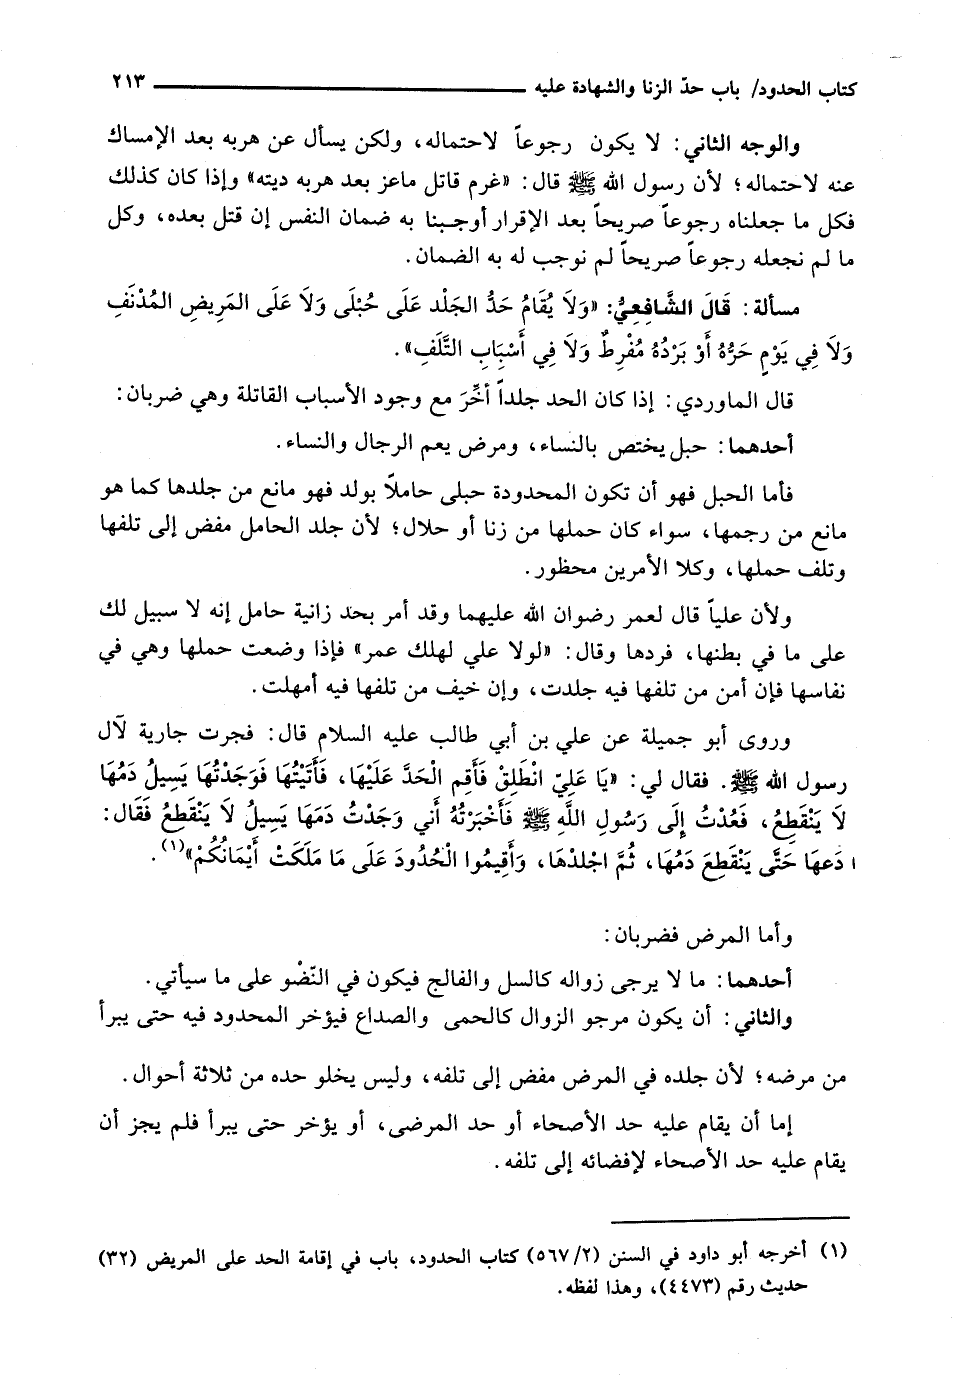 كتاب الحدود/ باب حدّ الزنا والشهادة عليه ٢١٣
والوجه الثاني: لا يكون رجوعاً لاحتماله، ولكن يسأل عن هربه بعد الإمساك
عنه لاحتماله؛ لأن رسول الله ﷺ قال: «غرم قاتل ماعز بعد هربه ديته» وإذا كان كذلك
فكل ما جعلناه رجوعاً صريحاً بعد الإقرار أوجبنا به ضمان النفس إن قتل بعده، وكل
ما لم نجعله رجوعاً صريحاً لم نوجب له به الضمان.
مسألة: قَالَ الشَّافِعِيُّ: «وَلَا يُقَامُ حَدُّ الجَلْد عَلَى حُبْلَى وَلَا عَلَى المَرِيضِ المُدْنَفِ
وَلَا فِي يَوْمٍ حَرُّهُ أَوْ بَرْدُهُ مُفْرِطٌ وَلَا فِي أَسْبَابِ التَّلَفِ».
قال الماوردي: إذا كان الحد جلداً أخِّرَ مع وجود الأسباب القاتلة وهي ضربان:
أحدهما: حبل يختص بالنساء، ومرض يعم الرجال والنساء.
فأما الحبل فهو أن تكون المحدودة حبلى حاملاً بولد فهو مانع من جلدها كما هو
مانع من رجمها، سواء كان حملها من زنا أو حلال؛ لأن جلد الحامل مفض إلى تلفها
وتلف حملها، وكلا الأمرين محظور.
ولأن علياً قال لعمر رضوان الله عليهما وقد أمر بحد زانية حامل إنه لا سبيل لك
على ما في بطنها، فردها وقال: «لولا علي لهلك عمر» فإذا وضعت حملها وهي في
نفاسها فإن أمن من تلفها فيه جلدت، وإن خيف من تلفها فيه أمهلت.
وروى أبو جميلة عن علي بن أبي طالب عليه السلام قال: فجرت جارية لآل
رسول الله ﷺ. فقال لي: «يَا عَلِيّ انْطَلِقْ فَأَقِم الْحَدَّ عَلَيْهَا، فَأَتَيْتُهَا فَوَجَدْتُهَا يَسِيلُ دَمُهَا
لَا يَنْقَطِعُ، فَعُدْتُ إِلَى رَسُولِ اللَّهِ ﷺ فَأَخْبَرْتُهُ أني وَجَدْتُ دَمَهَا يَسِيلُ لَا يَنْقَطِعُ فَقَالَ:
ا دَعهَا حَتَّى يَنْقَطِعَ دَمُهَا، ثُمَّ اجْلدْهَا، وَأَقِيمُوا الْحُدُودَ عَلَى مَا مَلَكَتْ أَيْمَانُكُمْ»(١).
وأما المرض فضربان:
أحدهما: ما لا يرجى زواله كالسل والفالج فيكون في النّضْو على ما سيأتي.
والثاني: أن يكون مرجو الزوال كالحمى والصداع فيؤخر المحدود فيه حتى يبرأ
من مرضه؛ لأن جلده في المرض مفض إلى تلفه، وليس يخلو حده من ثلاثة أحوال.
إما أن يقام عليه حد الأصحاء أو حد المرضى، أو يؤخر حتى يبرأ فلم يجز أن
يقام عليه حد الأصحاء لإفضائه إلى تلفه.
(١) أخرجه أبو داود في السنن (٥٦٧/٢) كتاب الحدود، باب في إقامة الحد على المريض (٣٢)
حديث رقم (٤٤٧٣)، وهذا لفظه.